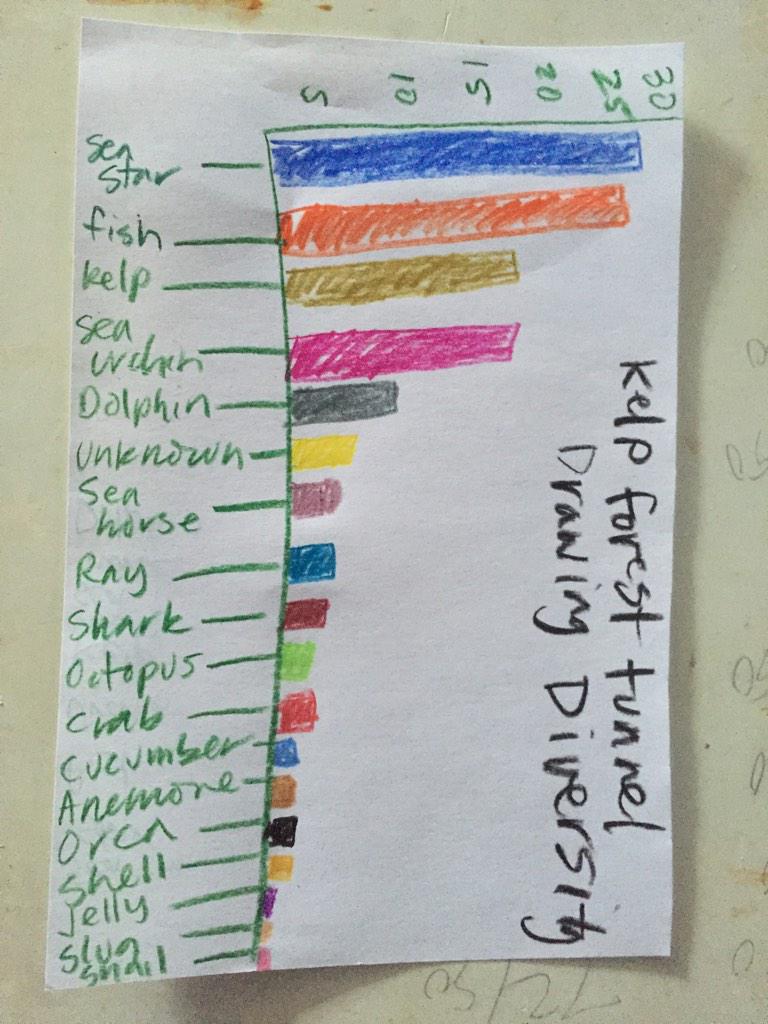 5 10 15 20 25 30
sea
star
fish
kelp
sea
urchin
Dolphin
unknown
Sea
horse
Ray
Shark
Octopus
crab
cucumber
Anemone
Orca
Shell
jelly
slug
snail
Kelp forest tunnel
Drawing Diversity